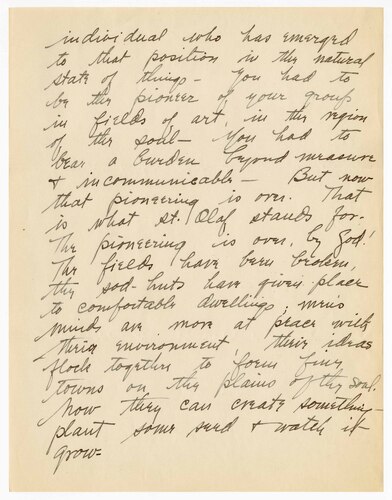 individual who has emerged
to that position in the natural
state of things - You had to
be the pioneer of your group
in fields of art, in the region
of the soul - You had to
bear a burden beyond measure
& incommunicable - But now
that pioneering is over. That
is what St. Olaf stands for.
The pioneering is over, by God!
The fields have been broken,
the sod-huts have given place
to comfortable dwellings, men's
minds are more at peace with
their environment their ideas
flock together to form fine
towns on the plains of the soul.
Now they can create something
plant some seed & watch it
grow -